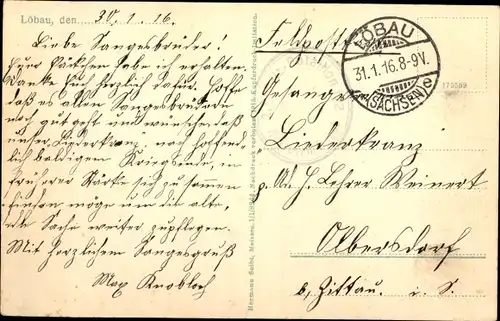 Löbau, den 30. 1. 16.
Liebe Sangesbrüder!
Euer Päckchen habe ich erhalten.
Danke Euch herzlich dafür. Hoffe
daß es allen Sangesbrüdern
noch gut geht und wünsche daß
unser Liederkranz nach hoffent-
lich baldigem Kriegsende, in
früherer Stärke sich zusammen
finden möge um die alte,
edle Sache weiter zu pflegen.
Mit herzlichem Sangesgruß
Max Knobloch
Feldpost
LÖBAU
31.1.16.8-9V.
(SACHSEN)
Gesang
Liederkranz
p. Ad. H. Lehrer Weinert
Olbersdorf
b. Zittau. i. S.
173589